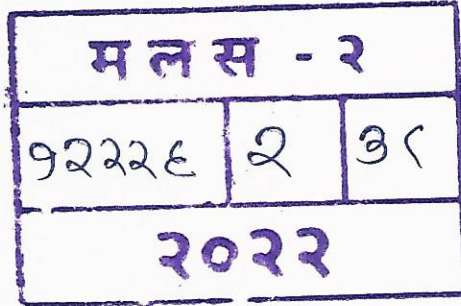 मलस - २
१२२२६ २ ३८
२०२२